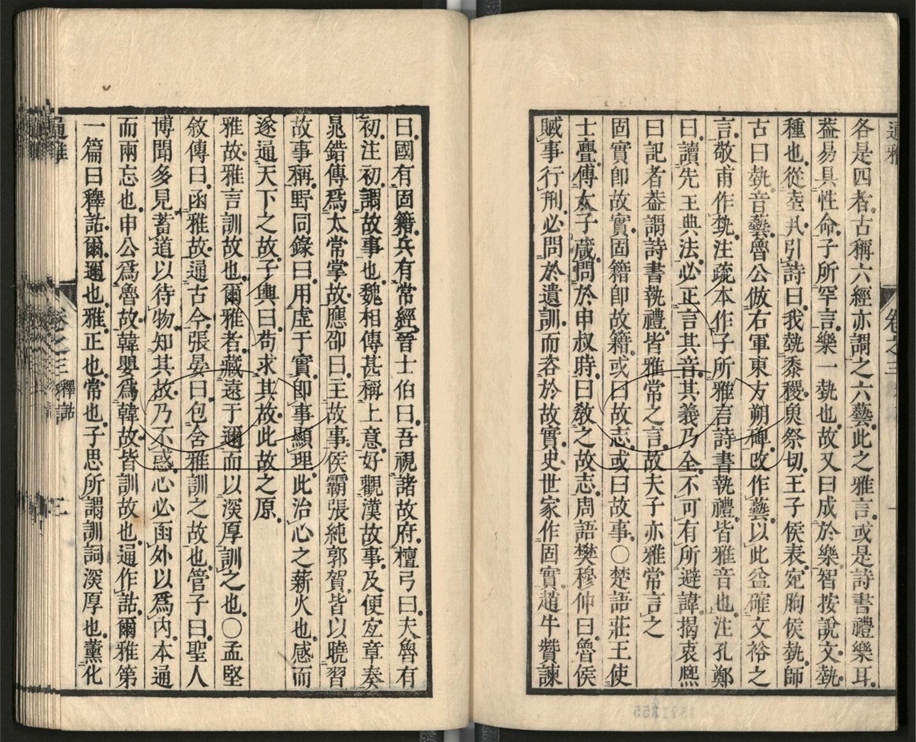 各是四者古稱六經亦謂之六藝此之雅言或是詩書禮樂耳
蓋易具性命子所罕言樂一埶也故又曰成於樂智按說文埶
種也從坴丮引詩曰我埶黍稷與祭切王子侯表宛朐侯埶師
古曰埶音藝魯公倣右軍東方朔碑改作藝以此益確文裕之
言敬甫作埶注疏本作子所雅言詩書執禮皆雅音也注孔鄭
曰讀先王典法必正言其音其義乃全不可有所避諱揭衷熈
曰記者葢謂詩書執禮皆雅常之言故夫子亦雅常言之
固實卽故實固籍卽故籍或曰故志或曰故事〇楚語莊王使
士亹傅太子葴問於申叔時曰敎之故志周語樊穆仲曰魯侯
賦事行刑必問於遺訓而咨於故實史世家作固實趙牛贊諫
曰國有固籍兵有常經晉士伯曰吾視諸故府檀弓曰夫魯有
初注初謂故事也魏相傳甚稱上意好觀漢故事及便宜章奏
鼂錯傳爲太常掌故應卲曰主故事侯霸張純郭賀皆以曉習
故事稱野同錄曰用虛于實卽事顯理此治心之薪火也感而
遂通天下之故子輿曰苟求其故此故之原
雅故雅言訓故也爾雅者藏遠于邇而以深厚訓之也〇孟堅
敘傳曰函雅故通古今張晏曰包含雅訓之故也管子曰聖人
博聞多見蓄道以待物知其故乃不惑心必函外以爲内本通
而兩忘也申公爲魯故韓嬰爲韓故皆訓故也通作詁爾雅第
一篇曰釋詁爾邇也雅正也常也子思所謂訓詞深厚也薫化
通雅
卷之三
釋詁
三